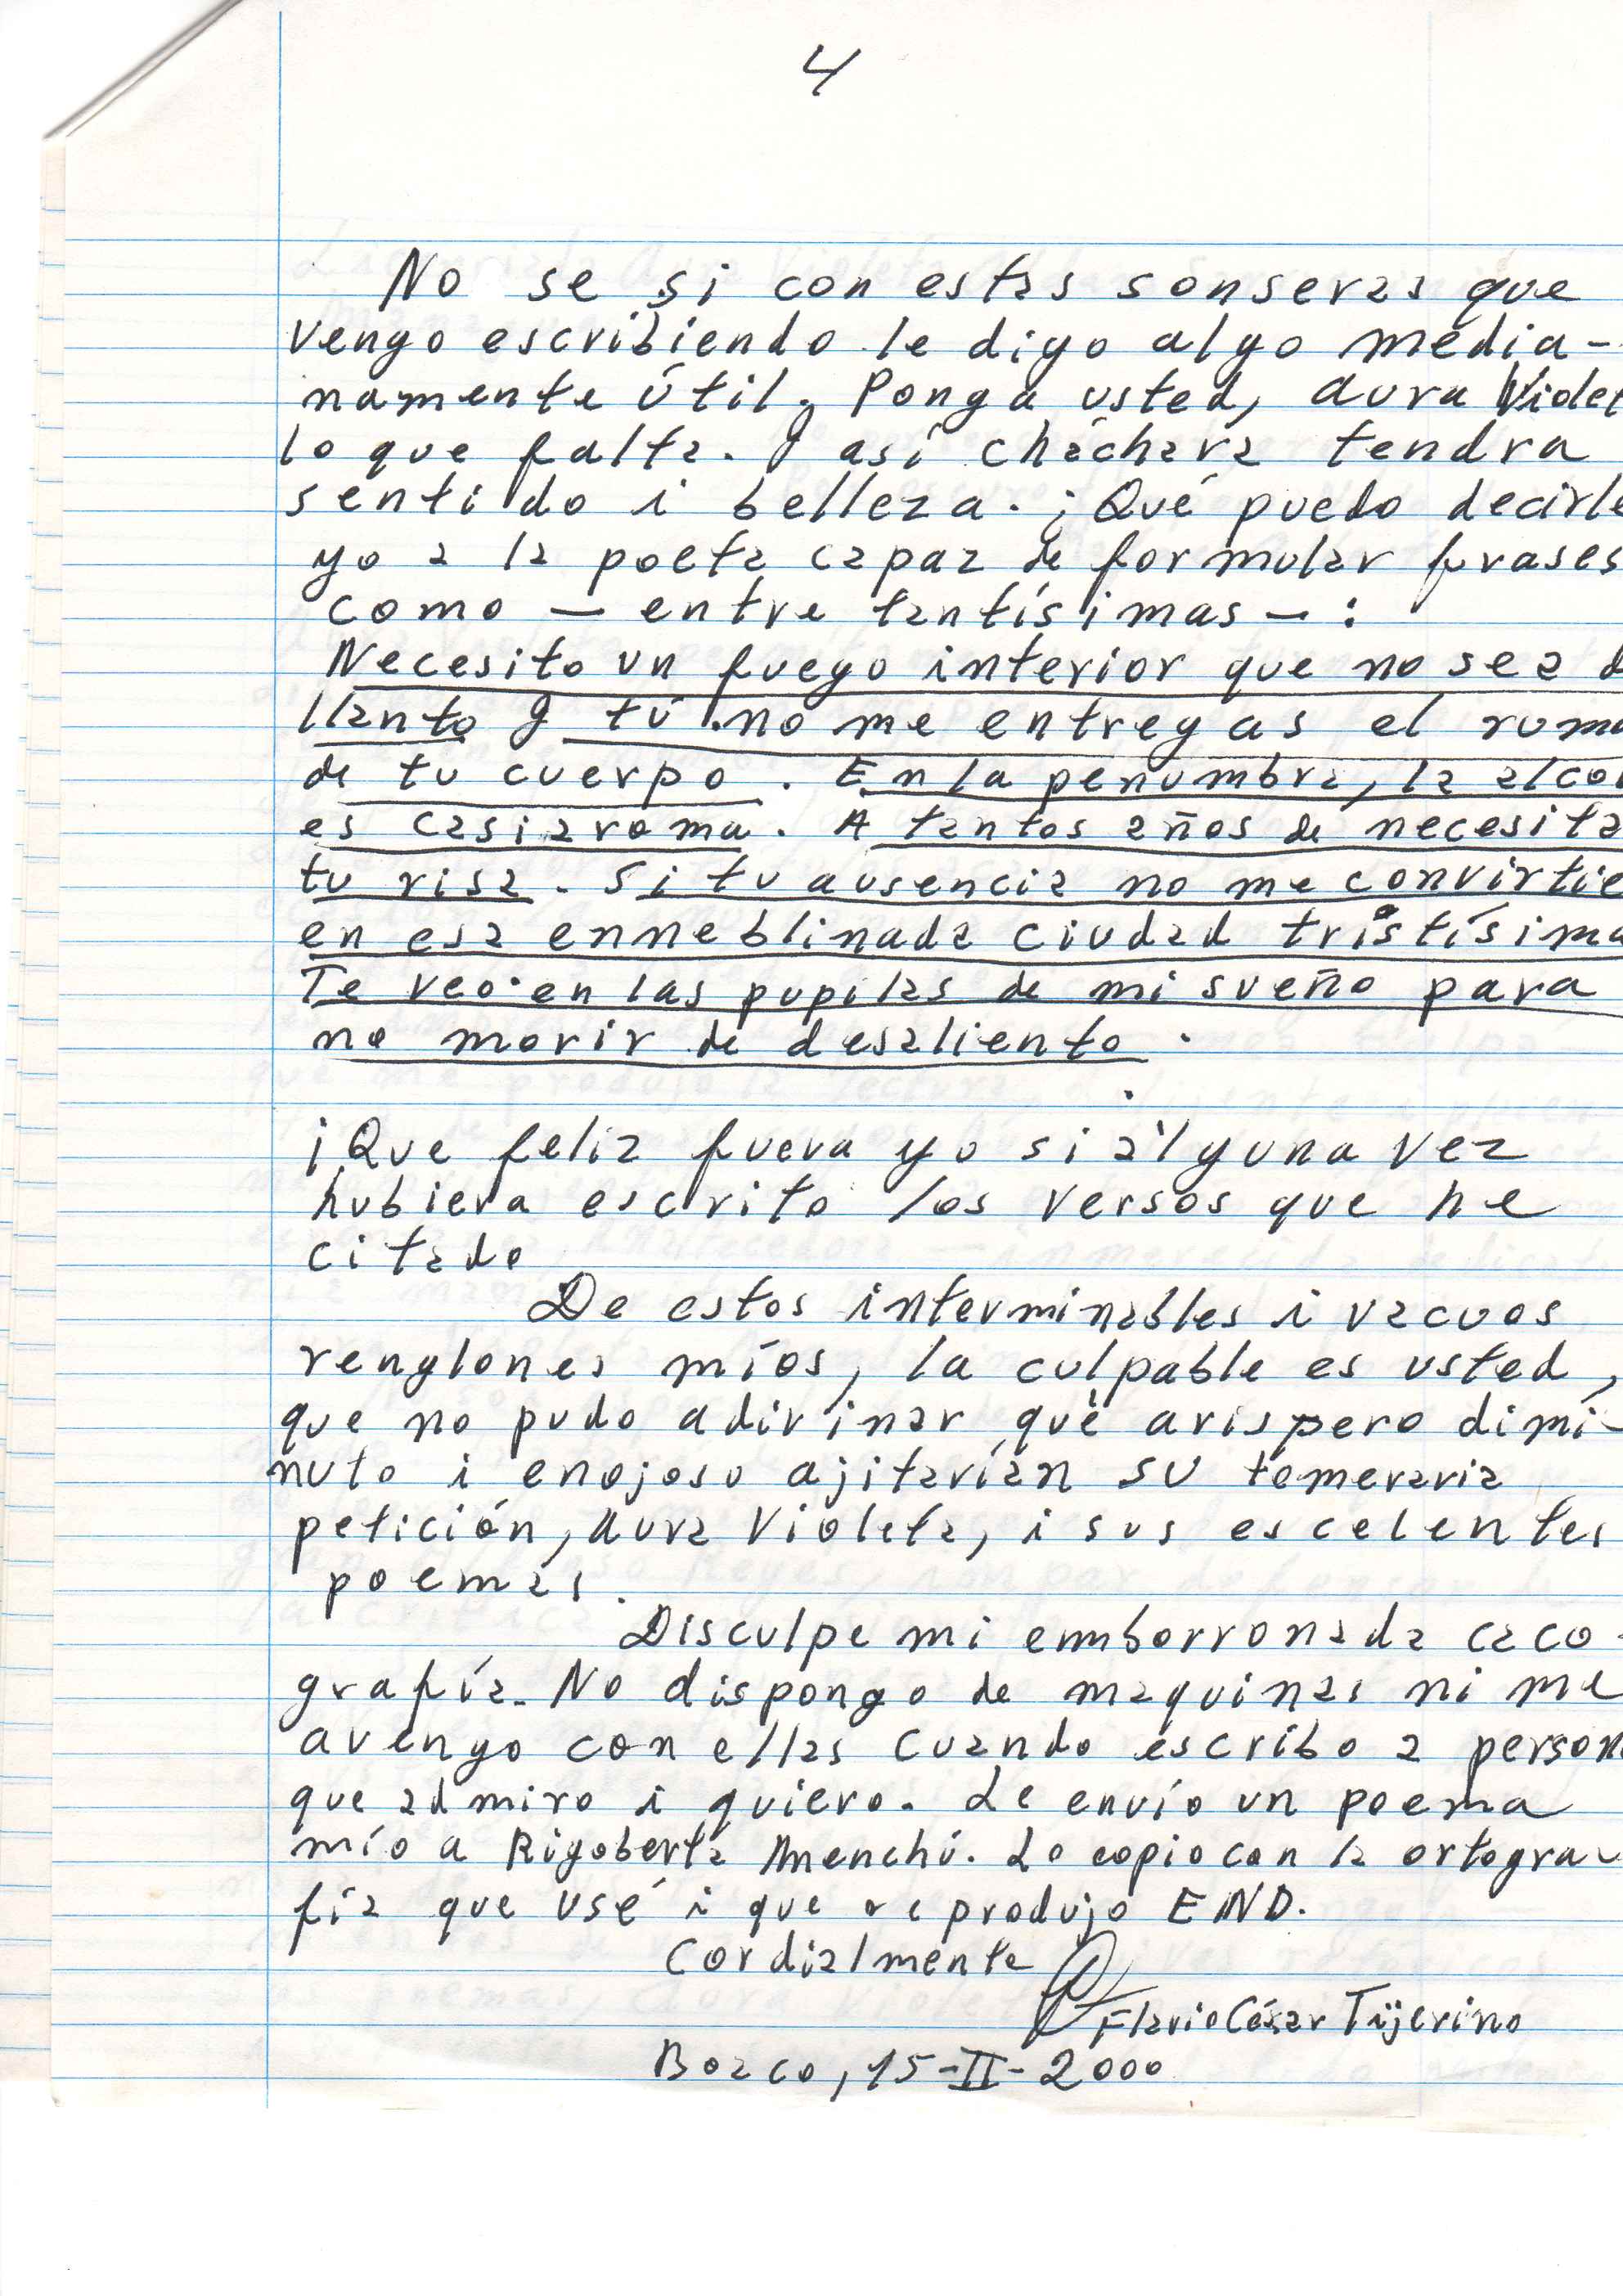 4
No se si con estas sonseras que
vengo escribiendo le digo algo media-
namente útil. Ponga usted, Aura Violet
lo que falta. I así cháchara tendra
sentido i belleza. ¡Qué puedo decirle
yo a la poeta capaz de formular frases
como — entre tantísimas — :
Necesito un fuego interior que no sea d
llanto y tú no me entregas el rum
de tu cuerpo. En la penumbra, la alco
es casi aroma. A tantos años de necesita
tu risa. Si tu ausencia no me convirtie
en esa enneblinada ciudad tristísima
Te veo en las pupilas de mi sueño para
no morir de desaliento.
¡Que feliz fuera yo si alguna vez
hubiera escrito los versos que he
citado
De estos interminables i vacuos
renglones míos, la culpable es usted,
que no pudo adivinar qué avispero dimi-
nuto i enojoso ajitarían su temeraria
petición, Aura Violeta, i sus escelentes
poemas.
Disculpe mi emborronada caco-
grafía. No dispongo de maquinas ni me
avengo con ellas cuando escribo a person
que admiro i quiero. Le envío un poema
mío a Rigoberta Menchú. Lo copio con la ortogra-
fía que usé i que reprodujo END.
Cordialmente
Flavio César Tijerino
Boaco, 15-II-2000